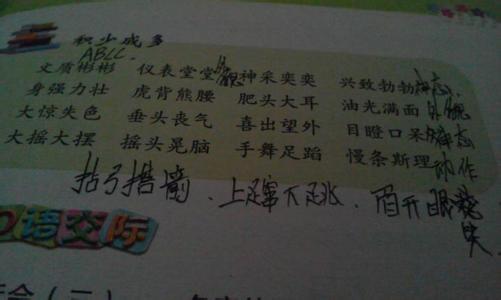 积少成多
ABCC.
文质彬彬 仪表堂堂 外貌 神采奕奕 兴致勃勃 神态.
身强力壮 虎背熊腰 肥头大耳 油光满面 外貌
大惊失色 垂头丧气 喜出望外 目瞪口呆 神态
大摇大摆 摇头晃脑 手舞足蹈 慢条斯理 动作
拈弓搭箭.上蹿下跳.眉开眼笑
口语交际